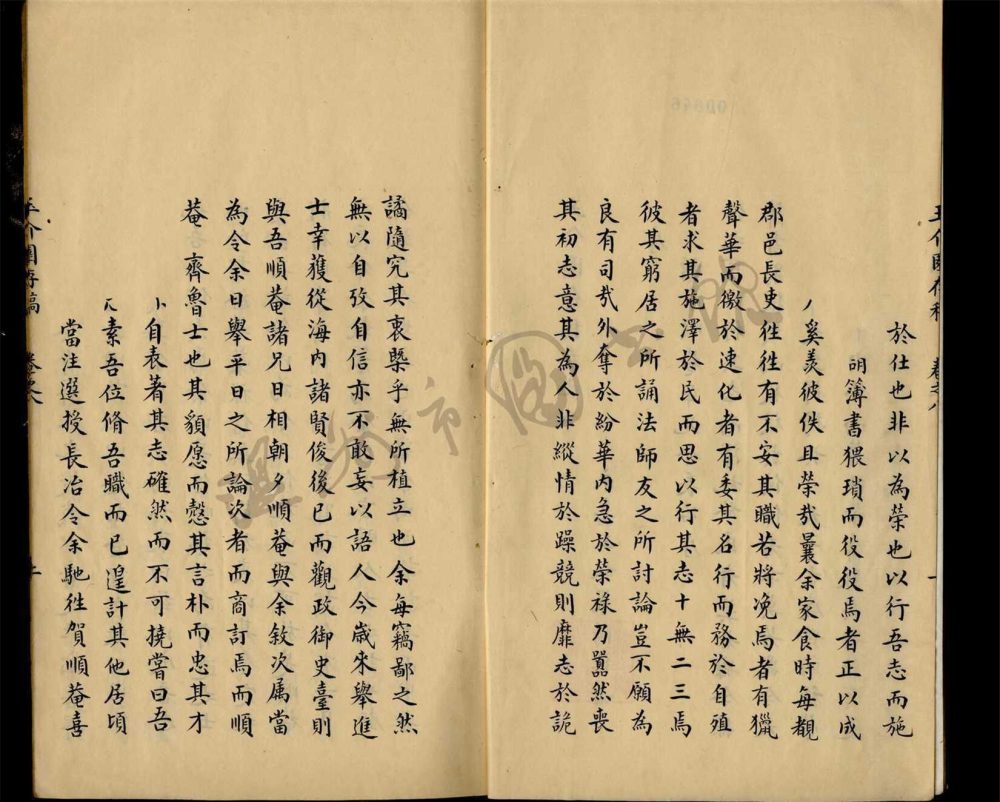 於仕也非以為榮也以行吾志而施
明簿書猥瑣而役役焉者正以成
奚羡彼佚且榮哉曩余家食時每覩
郡邑長吏徃徃有不安其職若將浼焉者有獵
聲華而徼於速化者有委其名行而務於自殖
者求其施澤於民而思以行其志十無二三焉
彼其窮居之所誦法師友之所討論豈不願為
良有司哉外奪於紛華内急於榮祿乃囂然喪
其初志意其為人非縱情於躁競則靡志於詭
譎隨究其衷槩乎無所植立也余每竊鄙之然
無以自攷自信亦不敢妄以語人今歲來舉進
士幸獲從海内諸賢俊後已而觀政御史臺則
與吾順菴諸兄日相朝夕順菴與余敘次属當
為令余日舉平日之所論次者而商訂焉而順
菴齊魯士也其貌愿而慤其言朴而忠其才
自表著其志確然而不可撓嘗曰吾
素吾位脩吾職而已遑計其他居頃
當注選授長冶令余馳徃賀順菴喜
五介園存稿 卷之八